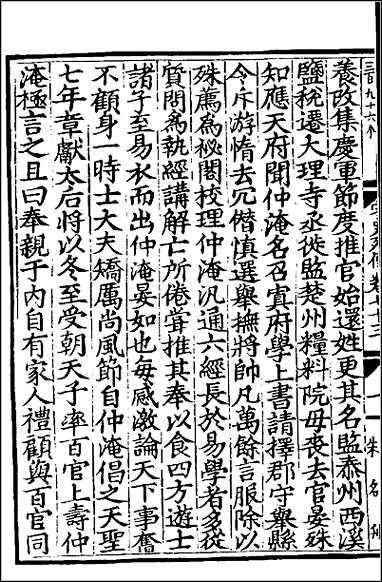 三百九十六个
列傳卷七十三
一
朱名刊
養改集慶軍節度推官始還姓更其名監泰州西溪
鹽稅遷大理寺丞徙監楚州糧料院母喪去官晏殊
知應天府聞仲淹名召寘府學上書請擇郡守舉縣
令斥游惰去冗僭慎選舉撫將帥凡萬餘言服除以
殊薦爲祕閣校理仲淹汎通六經長於易學者多從
質問爲執經講解亡所倦嘗推其奉以食四方遊士
諸子至易衣而出仲淹晏如也每感激論天下事奮
不顧身一時士大夫矯厲尚風節自仲淹倡之天聖
七年章獻太后將以冬至受朝天子率百官上壽仲
淹極言之且曰奉親子內自有家人禮顧與百官同